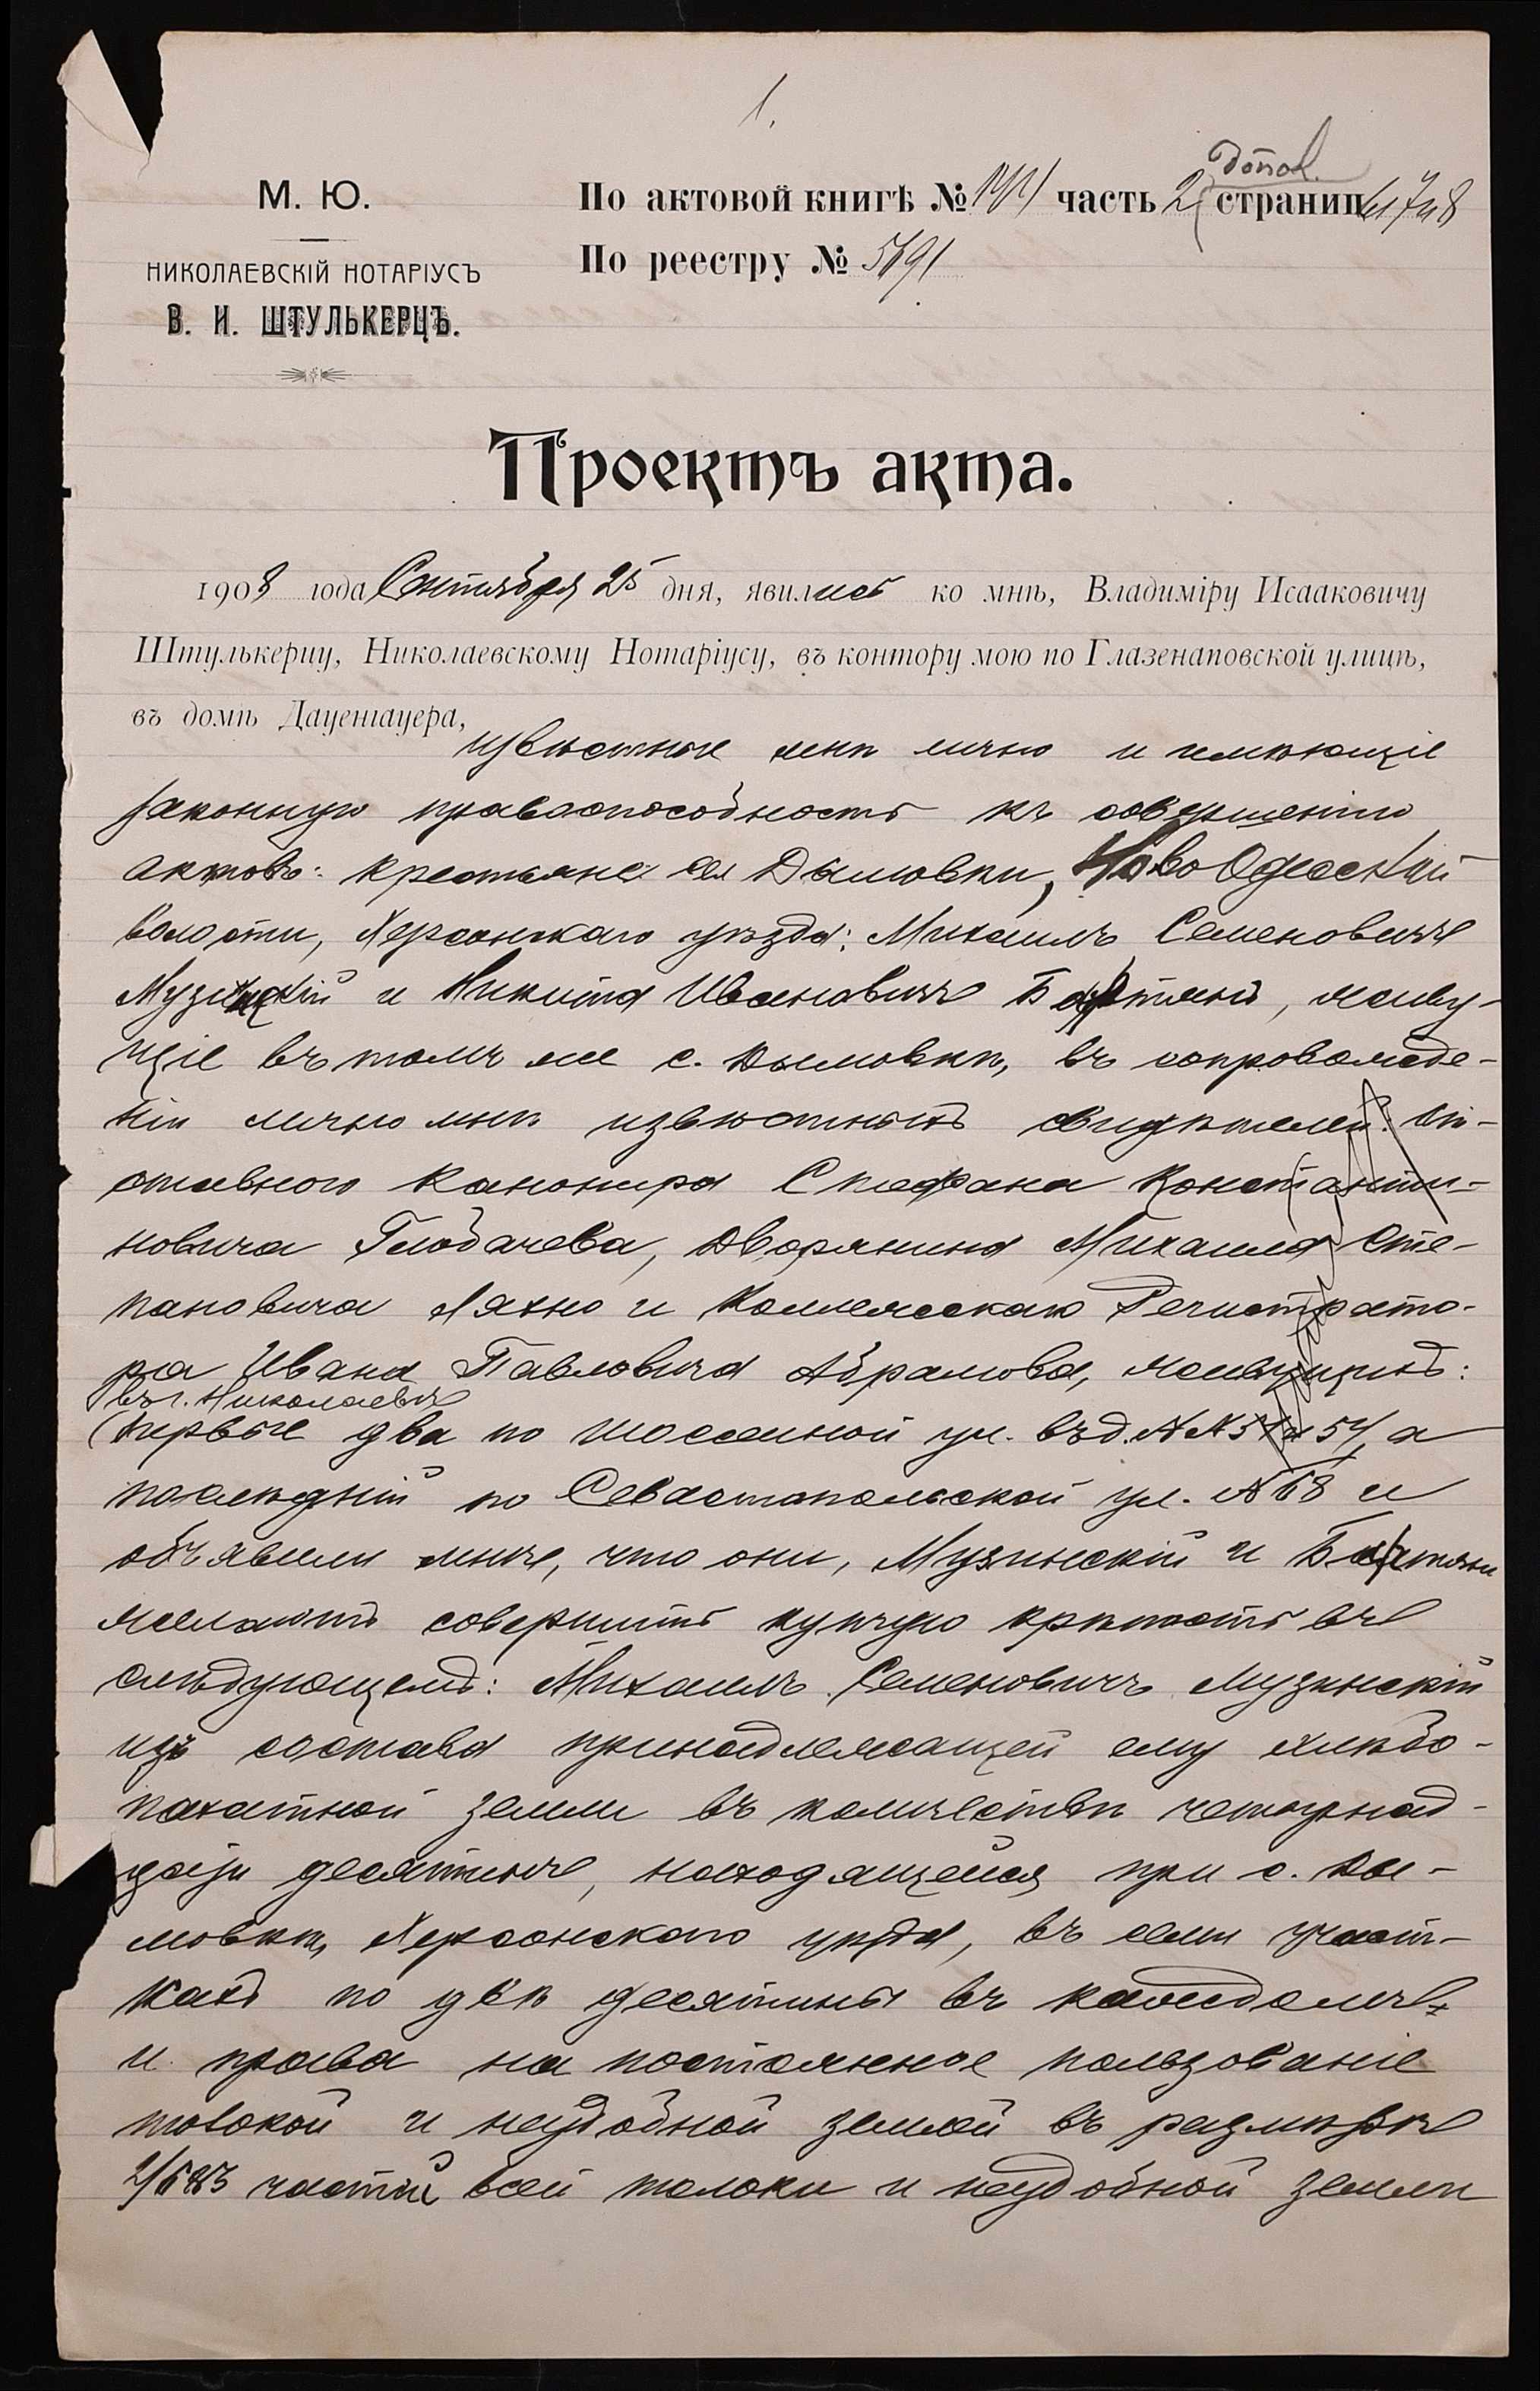 1.
допол.
М. Ю.
По актовой книгѣ № часть 2 страниц 7 и 8
НИКОЛАЕВСКІЙ НОТАРІУСЪ
По реестру № 5691
В. И. ШТУЛЬКЕРЦЪ.
Проектъ акта.
1908 года Сентября 25 дня, явились ко мнѣ, Владиміру Исааковичу
Штулькерцу, Николаевскому Нотаріусу, въ контору мою по Глазенаповской улицѣ,
въ домѣ Дауенгауера,
извѣстные мнѣ лично и имѣющіе
законную правоспособность къ совершенію
актовъ: крестьяне села Дымовки, Ново Одесской
волости, Херсонскаго уѣзда: Михаилъ Семеновичъ
Музинскій и Никита Ивановичъ живу-
щіе въ томъ же с. Дымовкѣ, въ сопровожде-
ніи лично мнѣ извѣстныхъ свидѣтелей: от-
ставного канонира Стефана Константи-
новича Глобачева, дворянина Михаила Сте-
пановича Ляхно и Коллежскаго Регистрато-
ра Ивана Павловича Абрамова, живущихъ:
въ г. Николаевѣ
первые два по Шоссейной ул. въ д. №№ и 54, а
послѣдній по Севастопольской ул. № 68 и
объявили мнѣ, что они, Музинскій и
желаютъ совершить купчую крѣпость въ
слѣдующемъ: Михаилъ Семеновичъ Музинскій
изъ состава принадлежащей ему хлѣбо-
пахатной земли въ количествѣ четырнад-
цати десятинъ, находящейся при с. Ды-
мовкѣ, Херсонскаго уѣзда, въ семи участ-
кахъ по двѣ десятины въ каждомъ
и права на постоянное пользованіе
толокой и неудобной землей въ размѣрѣ
частей всей толоки и неудобной земли